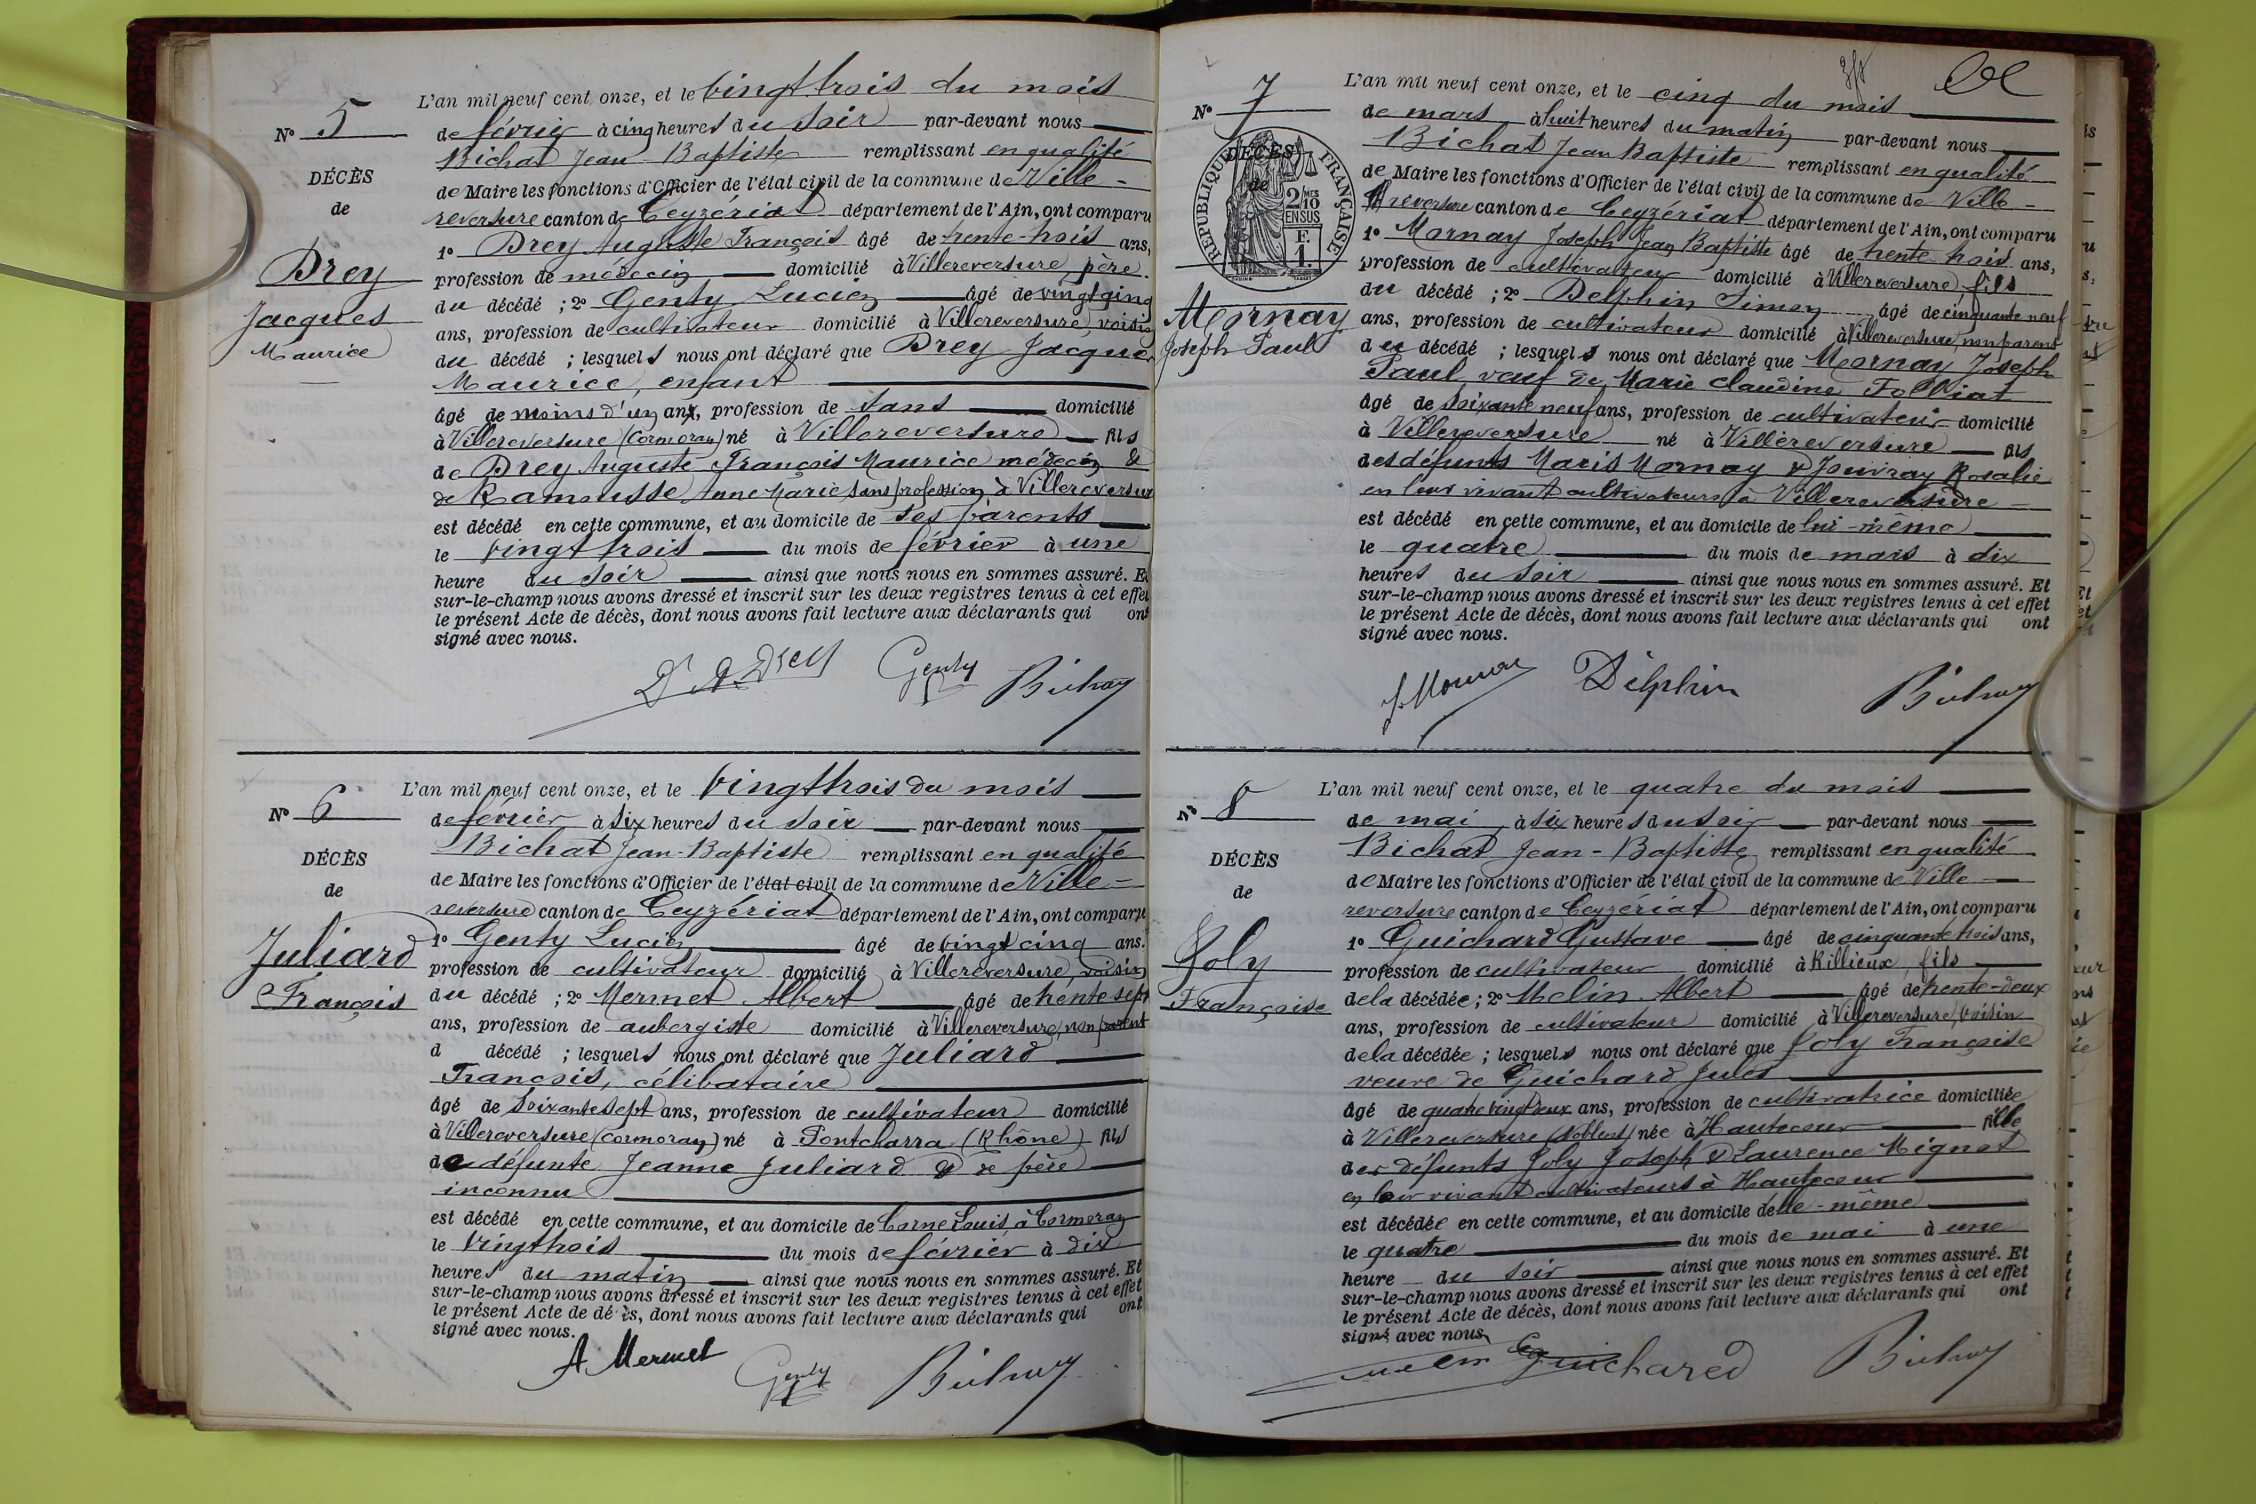 L'an mil neuf cent onze, et le vingt trois du mois
N° 5
de février à cinq heures du soir par-devant nous
Bichat Jean Baptiste remplissant en qualité
DÉCÈS
de Maire les fonctions d'Officier de l'état civil de la commune de Ville-
de
reversure canton de Ceyzériat département de l'Ain, ont comparu
1° Drey Auguste François âgé de trente-trois ans,
Drey
profession de médecin domicilié à Villereversure, père
du décédé ; 2° Genty Lucien âgé de vingt cinq
Jacques
ans, profession de cultivateur domicilié à Villereversure, voisin
Maurice
du décédé ; lesquels nous ont déclaré que Drey Jacques
Maurice, enfant
âgé de moins d'un an, profession de sans domicilié
à Villereversure (Cormoran) né à Villereversure fils
de Drey Auguste François Maurice médecin &
de Ramousse Anne Marie sans profession, à Villereversure
est décédé en cette commune, et au domicile de ses parents
le vingt trois du mois de février à une
heure du soir ainsi que nous nous en sommes assuré. Et
sur-le-champ nous avons dressé et inscrit sur les deux registres tenus à cet effet
le présent Acte de décès, dont nous avons fait lecture aux déclarants qui ont
signé avec nous.
Dr A. Drey Genty Bichat
L'an mil neuf cent onze, et le vingt trois du mois
N° 6
de février à six heures du soir par-devant nous
Bichat Jean-Baptiste remplissant en qualité
DÉCÈS
de Maire les fonctions d'Officier de l'état civil de la commune de Ville-
de
reversure canton de Ceyzériat département de l'Ain, ont comparu
1° Genty Lucien âgé de vingt cinq ans.
Juliard
profession de cultivateur domicilié à Villereversure, voisin
François
du décédé ; 2° Mermet Albert âgé de trente sept
ans, profession de aubergiste domicilié à Villereversure, non parent
d décédé ; lesquels nous ont déclaré que Juliard
François, célibataire
âgé de soixante sept ans, profession de cultivateur domicilié
à Villereversure (Cormoran) né à Pontcharra (Rhône) fils
de défunte Jeanne Juliard & de père
inconnu
est décédé en cette commune, et au domicile de Corne Louis à Cormoran
le vingt trois du mois de février à dix
heures du matin ainsi que nous nous en sommes assuré. Et
sur-le-champ nous avons dressé et inscrit sur les deux registres tenus à cet effet
le présent Acte de décès, dont nous avons fait lecture aux déclarants qui ont
signé avec nous.
A Mermet Genty Bichat
L'an mil neuf cent onze, et le cinq du mois
N° 7
de mars à huit heures du matin par-devant nous
Bichat Jean Baptiste remplissant en qualité
DÉCÈS
de Maire les fonctions d'Officier de l'état civil de la commune de Ville-
de
RÉPUBLIQUE FRANÇAISE
2/10 MES EN SUS
F. 1.
reversure canton de Ceyzériat département de l'Ain, ont comparu
1° Mornay Joseph Jean Baptiste âgé de trente trois ans,
profession de cultivateur domicilié à Villereversure, fils
du décédé ; 2° Delphin Simon âgé de cinquante neuf
Mornay
ans, profession de cultivateur domicilié à Villereversure, non parent
Joseph Paul
du décédé ; lesquels nous ont déclaré que Mornay Joseph
Paul, veuf de Marie Claudine Folliat
âgé de soixante neuf ans, profession de cultivateur domicilié
à Villereversure né à Villereversure fils
des défunts Maris Mornay & Jouvray Rosalie
en leur vivant cultivateurs à Villereversure
est décédé en cette commune, et au domicile de lui-même
le quatre du mois de mars à dix
heures du soir ainsi que nous nous en sommes assuré. Et
sur-le-champ nous avons dressé et inscrit sur les deux registres tenus à cet effet
le présent Acte de décès, dont nous avons fait lecture aux déclarants qui ont
signé avec nous.
J. Mornay Delphin Bichat
L'an mil neuf cent onze, et le quatre du mois
N° 8
de mai à six heures du soir par-devant nous
Bichat Jean-Baptiste remplissant en qualité
DÉCÈS
de Maire les fonctions d'Officier de l'état civil de la commune de Ville
de
reversure canton de Ceyzériat département de l'Ain, ont comparu
1° Guichard Gustave âgé de cinquante trois ans,
Joly
profession de cultivateur domicilié à Rillieux, fils
Françoise
de la décédée ; 2° Melin Albert âgé de trente-deux
ans, profession de cultivateur domicilié à Villereversure, voisin
de la décédée ; lesquels nous ont déclaré que Joly Françoise
veuve de Guichard Jules
âgé de quatre vingt deux ans, profession de cultivatrice domiciliée
à Villereversure (Noblens) née à Hautecour fille
des défunts Joly Joseph & Laurence Mignot
en leur vivant cultivateurs à Hautecour
est décédée en cette commune, et au domicile d'elle-même
le quatre du mois de mai à une
heure du soir ainsi que nous nous en sommes assuré. Et
sur-le-champ nous avons dressé et inscrit sur les deux registres tenus à cet effet
le présent Acte de décès, dont nous avons fait lecture aux déclarants qui ont
signé avec nous.
Guichared Bichat